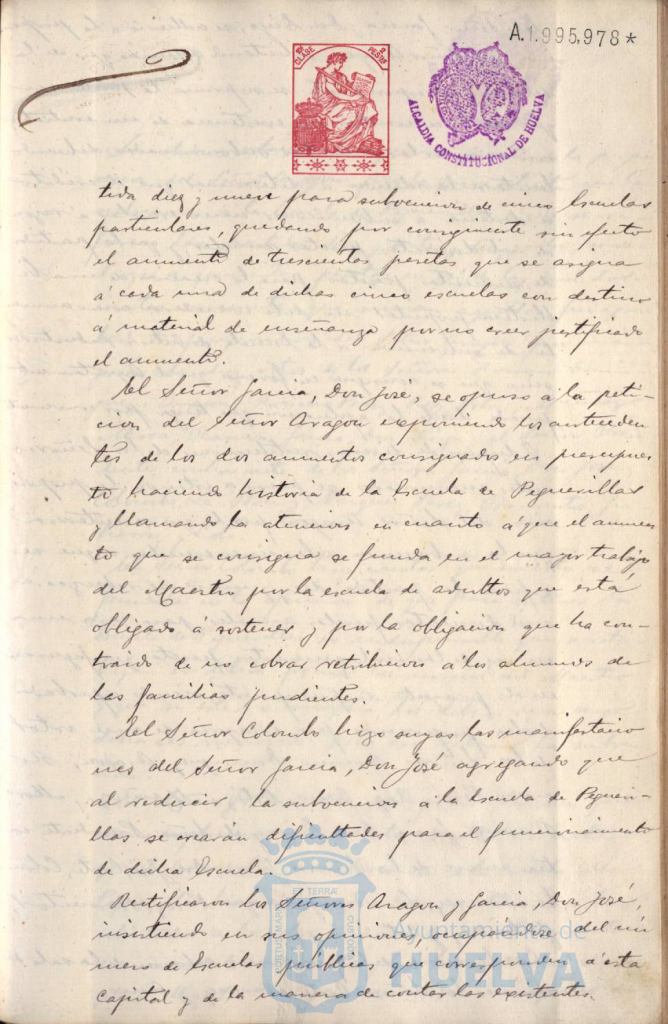 A.1.995,978*
CLASE
PESETA
ALCALDIA CONSTITUCIONAL DE HUELVA
tida diez y nueve para subvencion de cinco Escuelas
particulares, quedando por consiguiente sin efecto
el aumento de trescientas pesetas que se asigna
á cada una de dichas cinco escuelas con destino
á material de enseñanza por no creer justificado
el aumento.
El Señor Garcia, Don José, se opuso á la peti-
cion del Señor Aragon exponiendo los anteceden
tes de los dos aumentos consignados en presupues
to haciendo historia de la Escuela de Peguerillas
y llamando la atencion en cuanto á que el aumen
to que se consigna se funda en el mayor trabajo
del Maestro por la escuela de adultos que está
obligado á sostener y por la obligacion que ha con-
traido de no cobrar retribucion á los alumnos de
las familias pudientes.
El Señor Colombo hizo suyas las manifestacio
nes del Señor Garcia, Don José agregando que
al reducir la subvencion á la Escuela de Pegueri-
llas se crearán dificultades para el funcionamiento
de dicha Escuela.
Rectificaron los Señores Aragon y Garcia, Don José,
insistiendo en sus opiniones, ocupándose del nú
mero de Escuelas públicas que corresponden á esta
Capital y de la manera de contar las existentes.
Ayuntamiento de
HUELVA